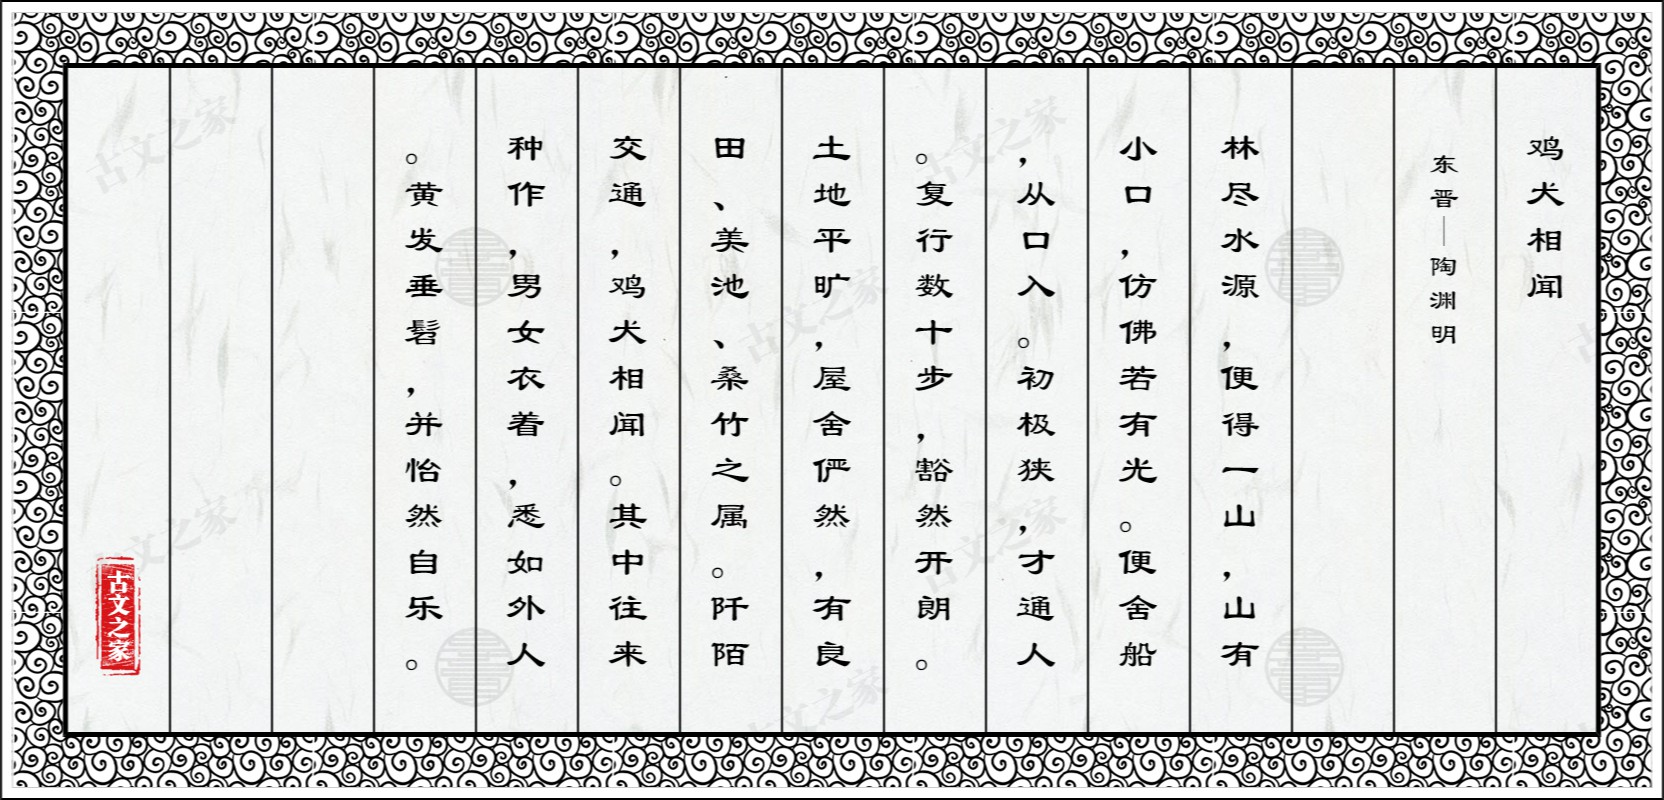 鸡犬相闻
东晋—陶渊明
林尽水源，便得一山，山有
小口，仿佛若有光。便舍船
，从口入。初极狭，才通人
。复行数十步，豁然开朗。
土地平旷，屋舍俨然，有良
田、美池、桑竹之属。阡陌
交通，鸡犬相闻。其中往来
种作，男女衣着，悉如外人
。黄发垂髫，并怡然自乐。
古文之家